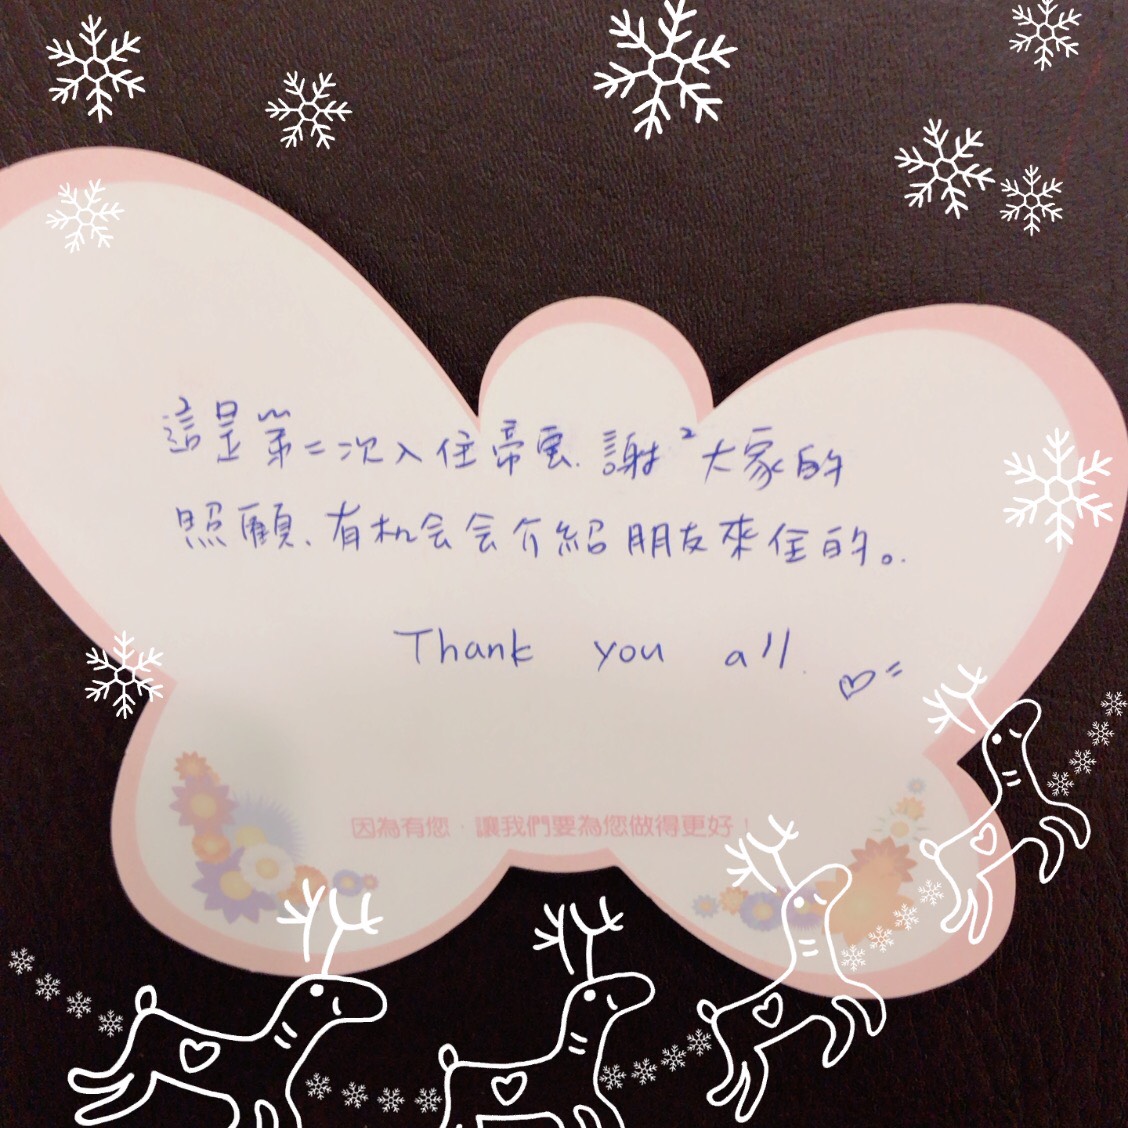 這是第二次入住帝雲.謝²大家的
照顧、有机会会介紹朋友來住的。
Thank you all.
因為有您，讓我們要為您做得更好！